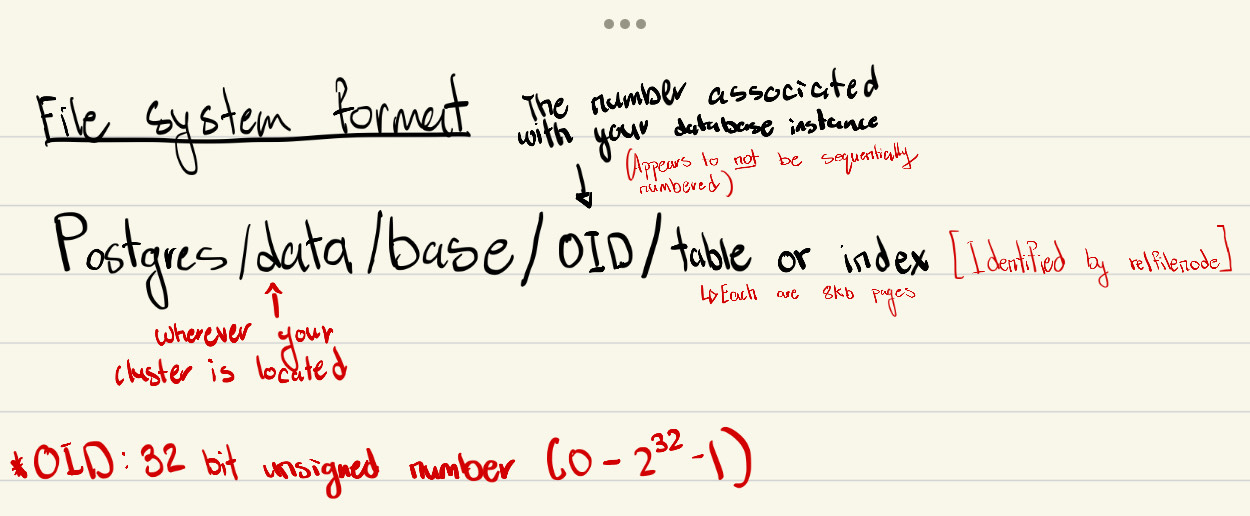 File system format
The number associated
with your database instance
(Appears to not be sequentially
numbered)
Postgres/data/base/OID/table or index [Identified by relfilenode]
↳Each are 8kb pages
wherever your
cluster is located
*OID: 32 bit unsigned number (0 - 2^32 - 1)